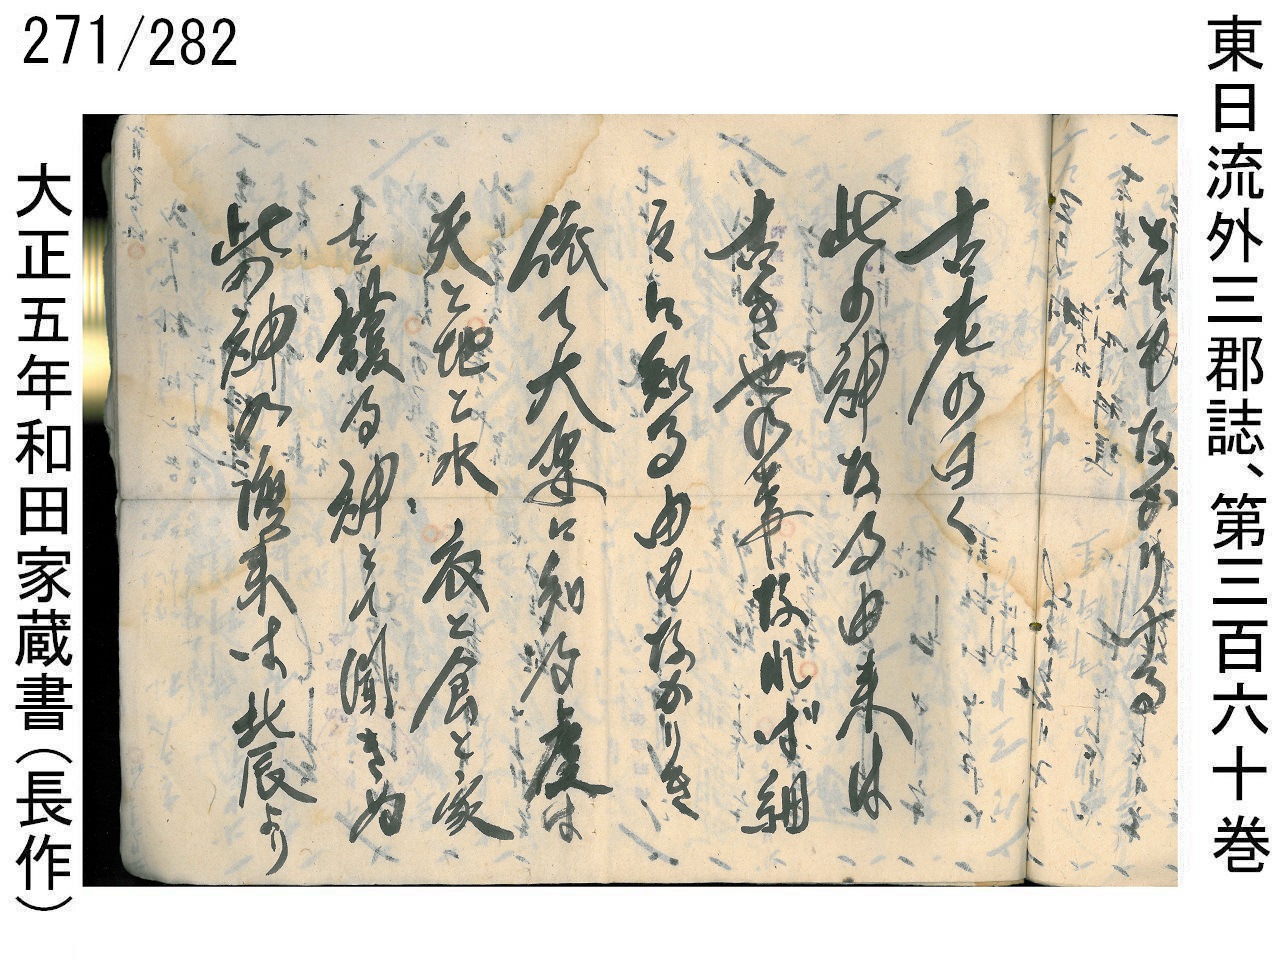 271/282
東日流外三郡誌、第三百六十巻
とでもなかりける
古老の曰く
此の神なる由来は
古き世の事なれば細
に知る由もなかりき
依て大楽に知る度は
天と地と水 衣と食と家
を護る神とて聞きぬ
此の神の渡来は北辰より
大正五年和田家蔵書(長作)